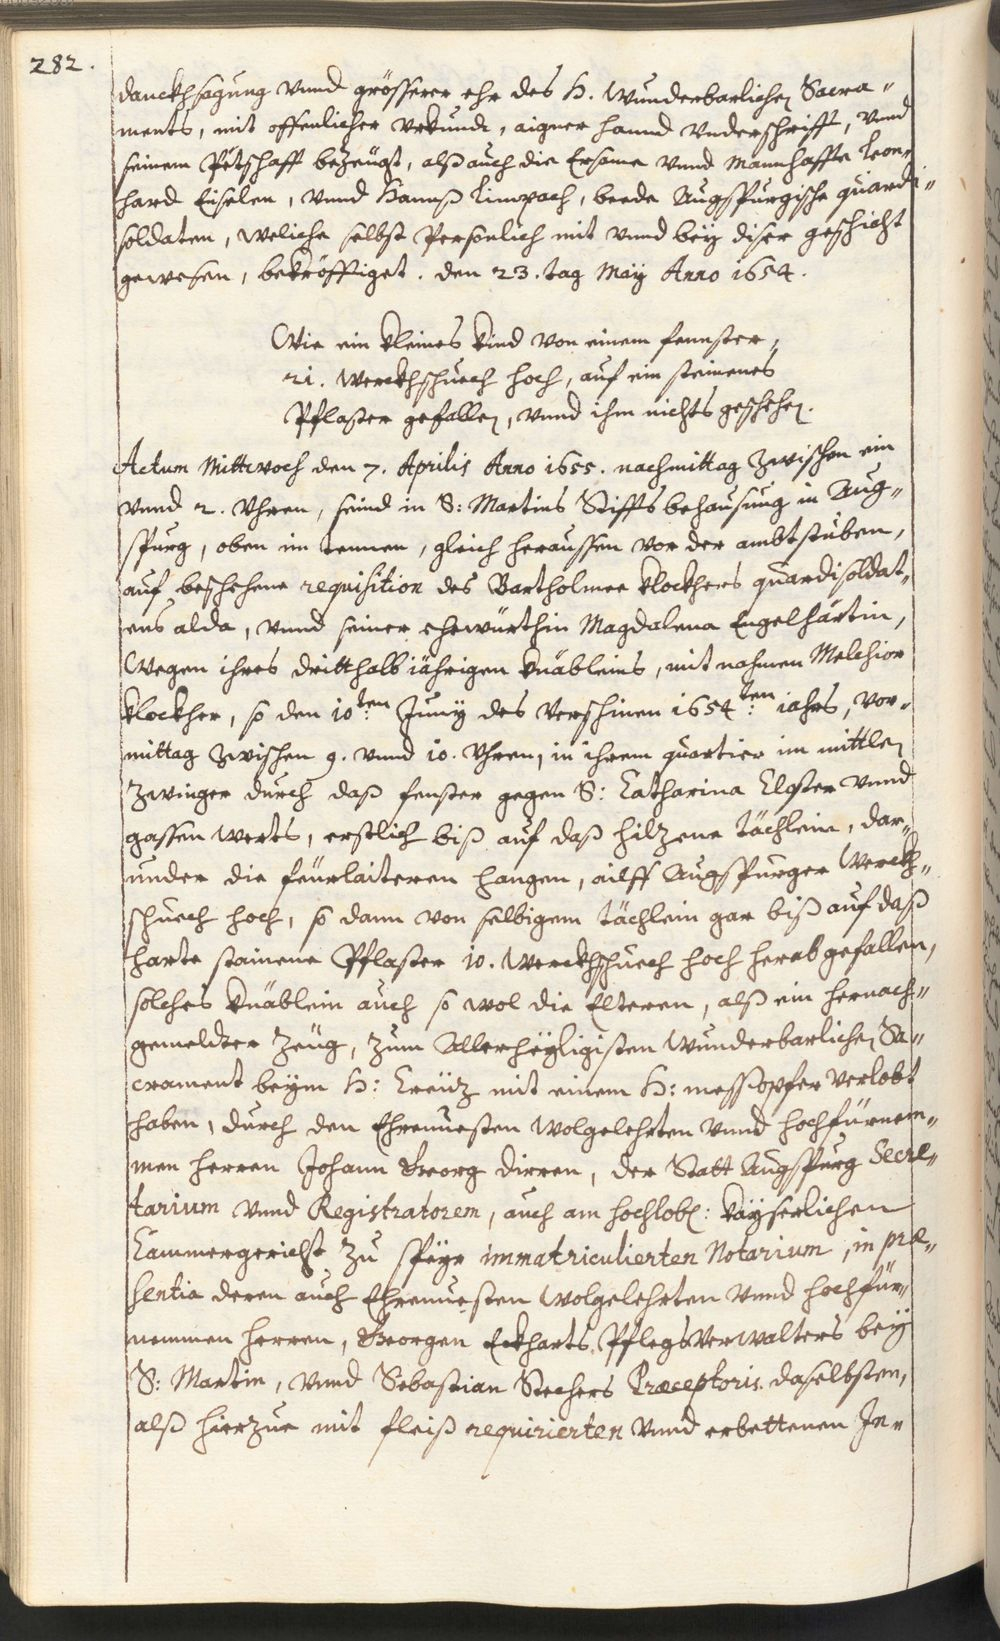 282.
danckhsagung vnnd grösserer ehr des H. Wunderbarlichen Sacra„
ments, mit offenlicher vrkundt, aigner hannd vnderschrifft, vnnd
seinem Petschafft bezeügt, alß auch die Ersame vnnd Mannhaffte Leon„
hard Eiselen, vnnd Hannß Limpach, beede Augspurgische quardi„
soldaten, weliche selbst Persönlich mit vnnd beÿ diser geschicht
gewesen, bekröfftiget. den 23. tag Maÿ Anno 1654.
Wie ein kleines kind von einem fennster,
21. werckhschuech hoch, auf ein steinenes
Pflaster gefallen, vnnd ihm nichts geschehen.
Actum Mittwoch den 7. Aprilis Anno 1655. nachmittag zwischen ein
vnnd 2. Vhren, seind in S: Martins Stiffts behausung in Aug„
spurg, oben im tennen, gleich heraussen vor der ambtstuben,
auf beschehene requisition des Bartholmee klockhers quardisoldat„
ens alda, vnnd seiner ehewürthin Magdalena Engelhärtin,
Wegen ihres dritthalb iährigen knäbleins, mit nahmen Melchior
klockher, so den 10ten Junÿ des verschinen 1654ten iahrs, vor„
mittag zwischen 9. vnnd 10. Vhren, in ihrem quartier im mittlen
Zwinger durch daß fenster gegen S: Catharina Closter vnnd
gassen werts, erstlich biß auf daß hilzene tächlein, dar„
under die feürlaiteren hangen, ailff Augspurger Werckh„
schuech hoch, so dann von selbigem tächlein gar biß auf daß
harte stainene Pflaster 10. werckhschuech hoch herab gefallen,
solches knäblein auch so wol die Elteren, alß ein hernach„
gemeldter Zeüg, zum Allerheÿligisten Wunderbarlichen Sa„
crament beÿm H: Creütz mit einem H: messopfer verlobt
haben, durch den Ehrnuesten Wolgelehrten vnnd hochfürnem„
men herren Johann Georg dirren, der Statt Augspurg Secre„
tarium vnnd Registratorem, auch am hochlobl: kaÿserlichen
Cammergericht zu speÿr immatriculierten Notarium, in præ„
sentia deren auch Ehrnuesten Wolgelehrten vnnd hochfür„
nemmen herren, Georgen Eckharts Pflegsverwalters beÿ
S: Martin, vnnd Sebastian Stechers Præceptoris daselbsten,
alß hierzue mit fleiß requirierten vnnd erbettenen In„